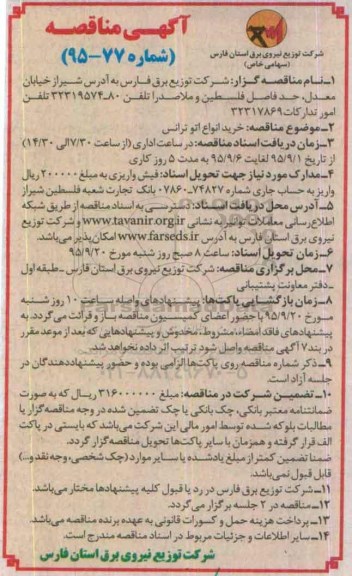 آگهی مناقصه
(شماره ۷۷-۹۵)
شرکت توزیع نیروی برق استان فارس
(سهامی خاص)
۱-نـام مناقصـه گـزار: شـرکت توزیع برق فـارس به آدرس شیـراز خیابان
معـدل، حـد فاصـل فلسـطین و ملاصـدرا تلفـن ۸۰-۳۲۳۱۹۵۷۴ تلفـن
امور تدارکات ۳۲۳۱۷۸۶۹
۲-موضوع مناقصه: خرید انواع اتو ترانس
۳-زمان دریافت اسناد مناقصه: در ساعت اداری (از ساعت ۷/۳۰ الی ۱۴/۳۰)
از تاریخ ۹۵/۹/۱ لغایت ۹۵/۹/۶ به مدت ۵ روز کاری
۴-مدارک مورد نیاز جهت تحویل اسناد: فیش واریزی به مبلغ ۲۰۰۰۰۰ ریال
واریز به حساب جاری شماره ۷۴۸۲۷-۰۷۸۶۰ بانک تجارت شعبه فلسطین شیراز
۵-آدرس محل دریافت اسناد: دسترسی به اسناد مناقصه از طریق شبکه
اطلاع رسانی معاملات توانیر به نشانی www.tavanir.org.ir و شرکت توزیع
نیروی برق استان فارس به آدرس www.farseds.ir امکان پذیر می‌باشد.
۶-زمان تحویل اسناد: ساعت ۸ صبح روز شنبه مورخ ۹۵/۹/۲۰
۷-محل برگزاری مناقصه: شرکت توزیع نیروی برق استان فارس - طبقه اول
- دفتر معاونت پشتیبانی
۸-زمان بازگشایی پاکت‌ها: پیشنهادهای واصله ساعت ۱۰ روز شنبه
مورخ ۹۵/۹/۲۰ با حضور اعضای کمیسیون مناقصه باز و قرائت می‌گردد. به
پیشنهادهای فاقد امضاء، مشروط، مخدوش و پیشنهادهایی که بعد از موعد مقرر
در بند ۷ آگهی مناقصه واصل شود ترتیب اثر داده نخواهد شد.
۹-ذکر شماره مناقصه روی پاکت‌ها الزامی بوده و حضور پیشنهاددهندگان در
جلسه آزاد است.
۱۰-تضمین شرکت در مناقصه: مبلغ ۳۱۶۰۰۰۰۰۰ ریـال که به صورت
ضمانتنامه معتبر بانکی، چک بانکی یا چک تضمین شده در وجه مناقصه گزار یا
مطالبات بلوکه شده توسط امور مالی این شرکت می‌باشد که بایستی در پاکت
الف قرار گرفته و همزمان با سایر پاکت‌ها تحویل مناقصه گزار گردد.
ضمنا تضمین کمتر از مبلغ یادشده یا سایر موارد (چک شخصی، وجه نقد و...)
قابل قبول نمی‌باشد.
۱۱-شرکت توزیع برق فارس در رد یا قبول کلیه پیشنهادها مختار می‌باشد.
۱۲-مناقصه در ۲ جلسه برگزار می‌گردد.
۱۳-پرداخت هزینه حمل و کسورات قانونی به عهده برنده مناقصه می‌باشد.
۱۴-سایر اطلاعات و جزئیات مربوط در اسناد مناقصه مندرج است.
شرکت توزیع نیروی برق استان فارس